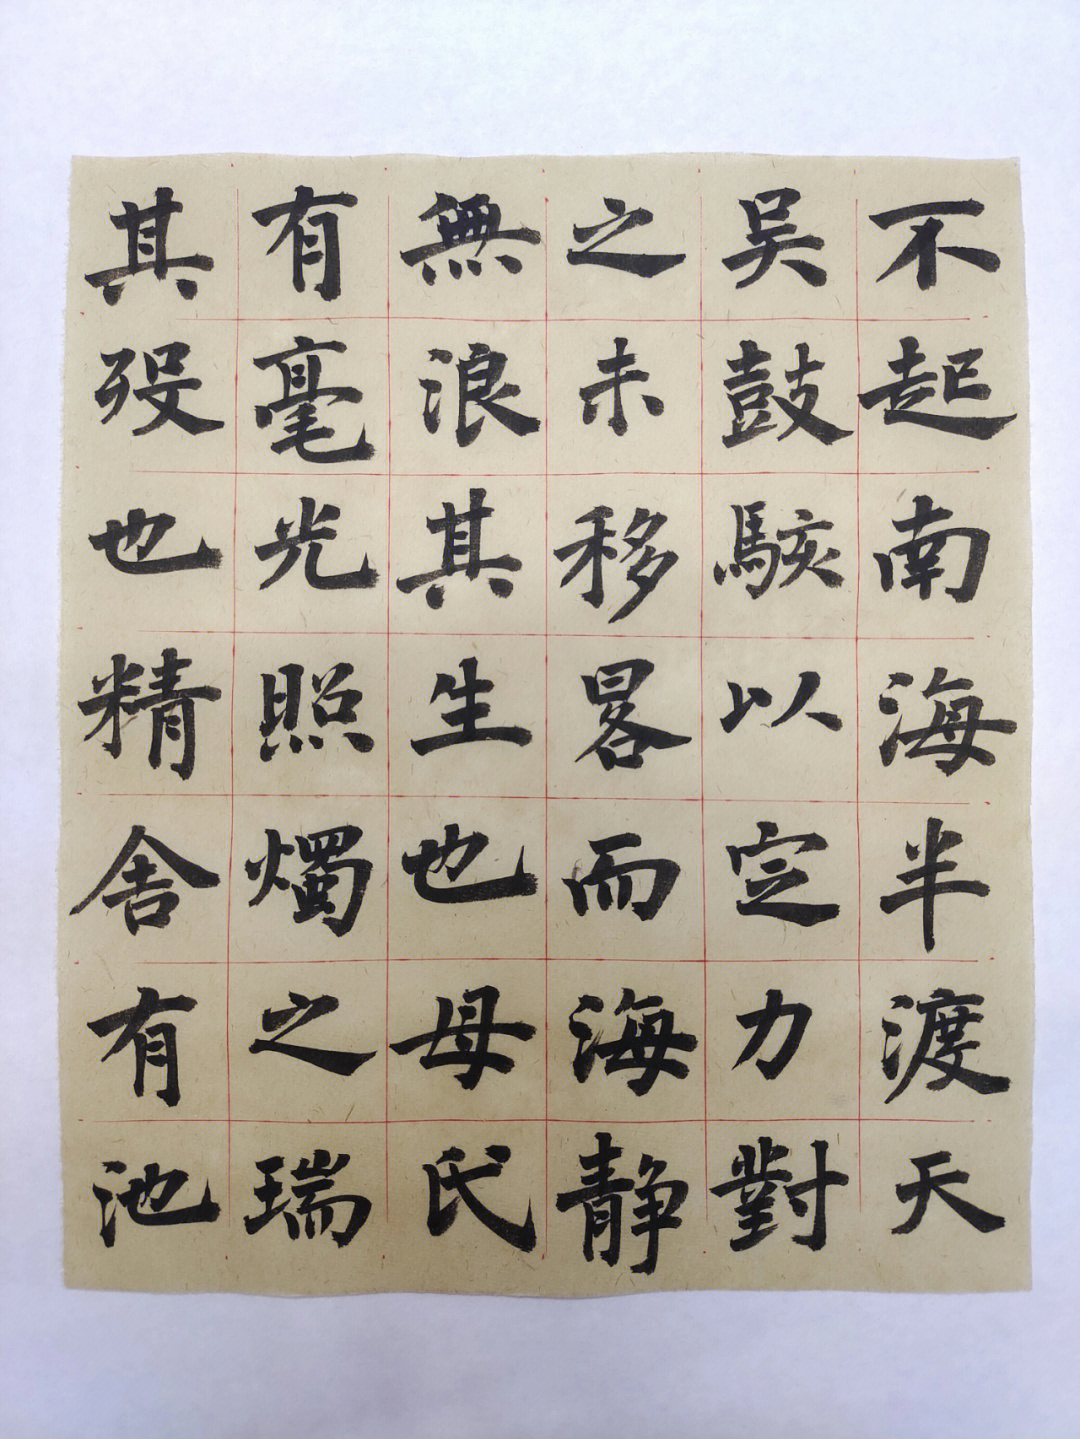 不起南海半渡天
吴鼓駭以定力對
之未移晷而海静
無浪其生也母氏
有毫光照燭之瑞
其殁也精舍有池